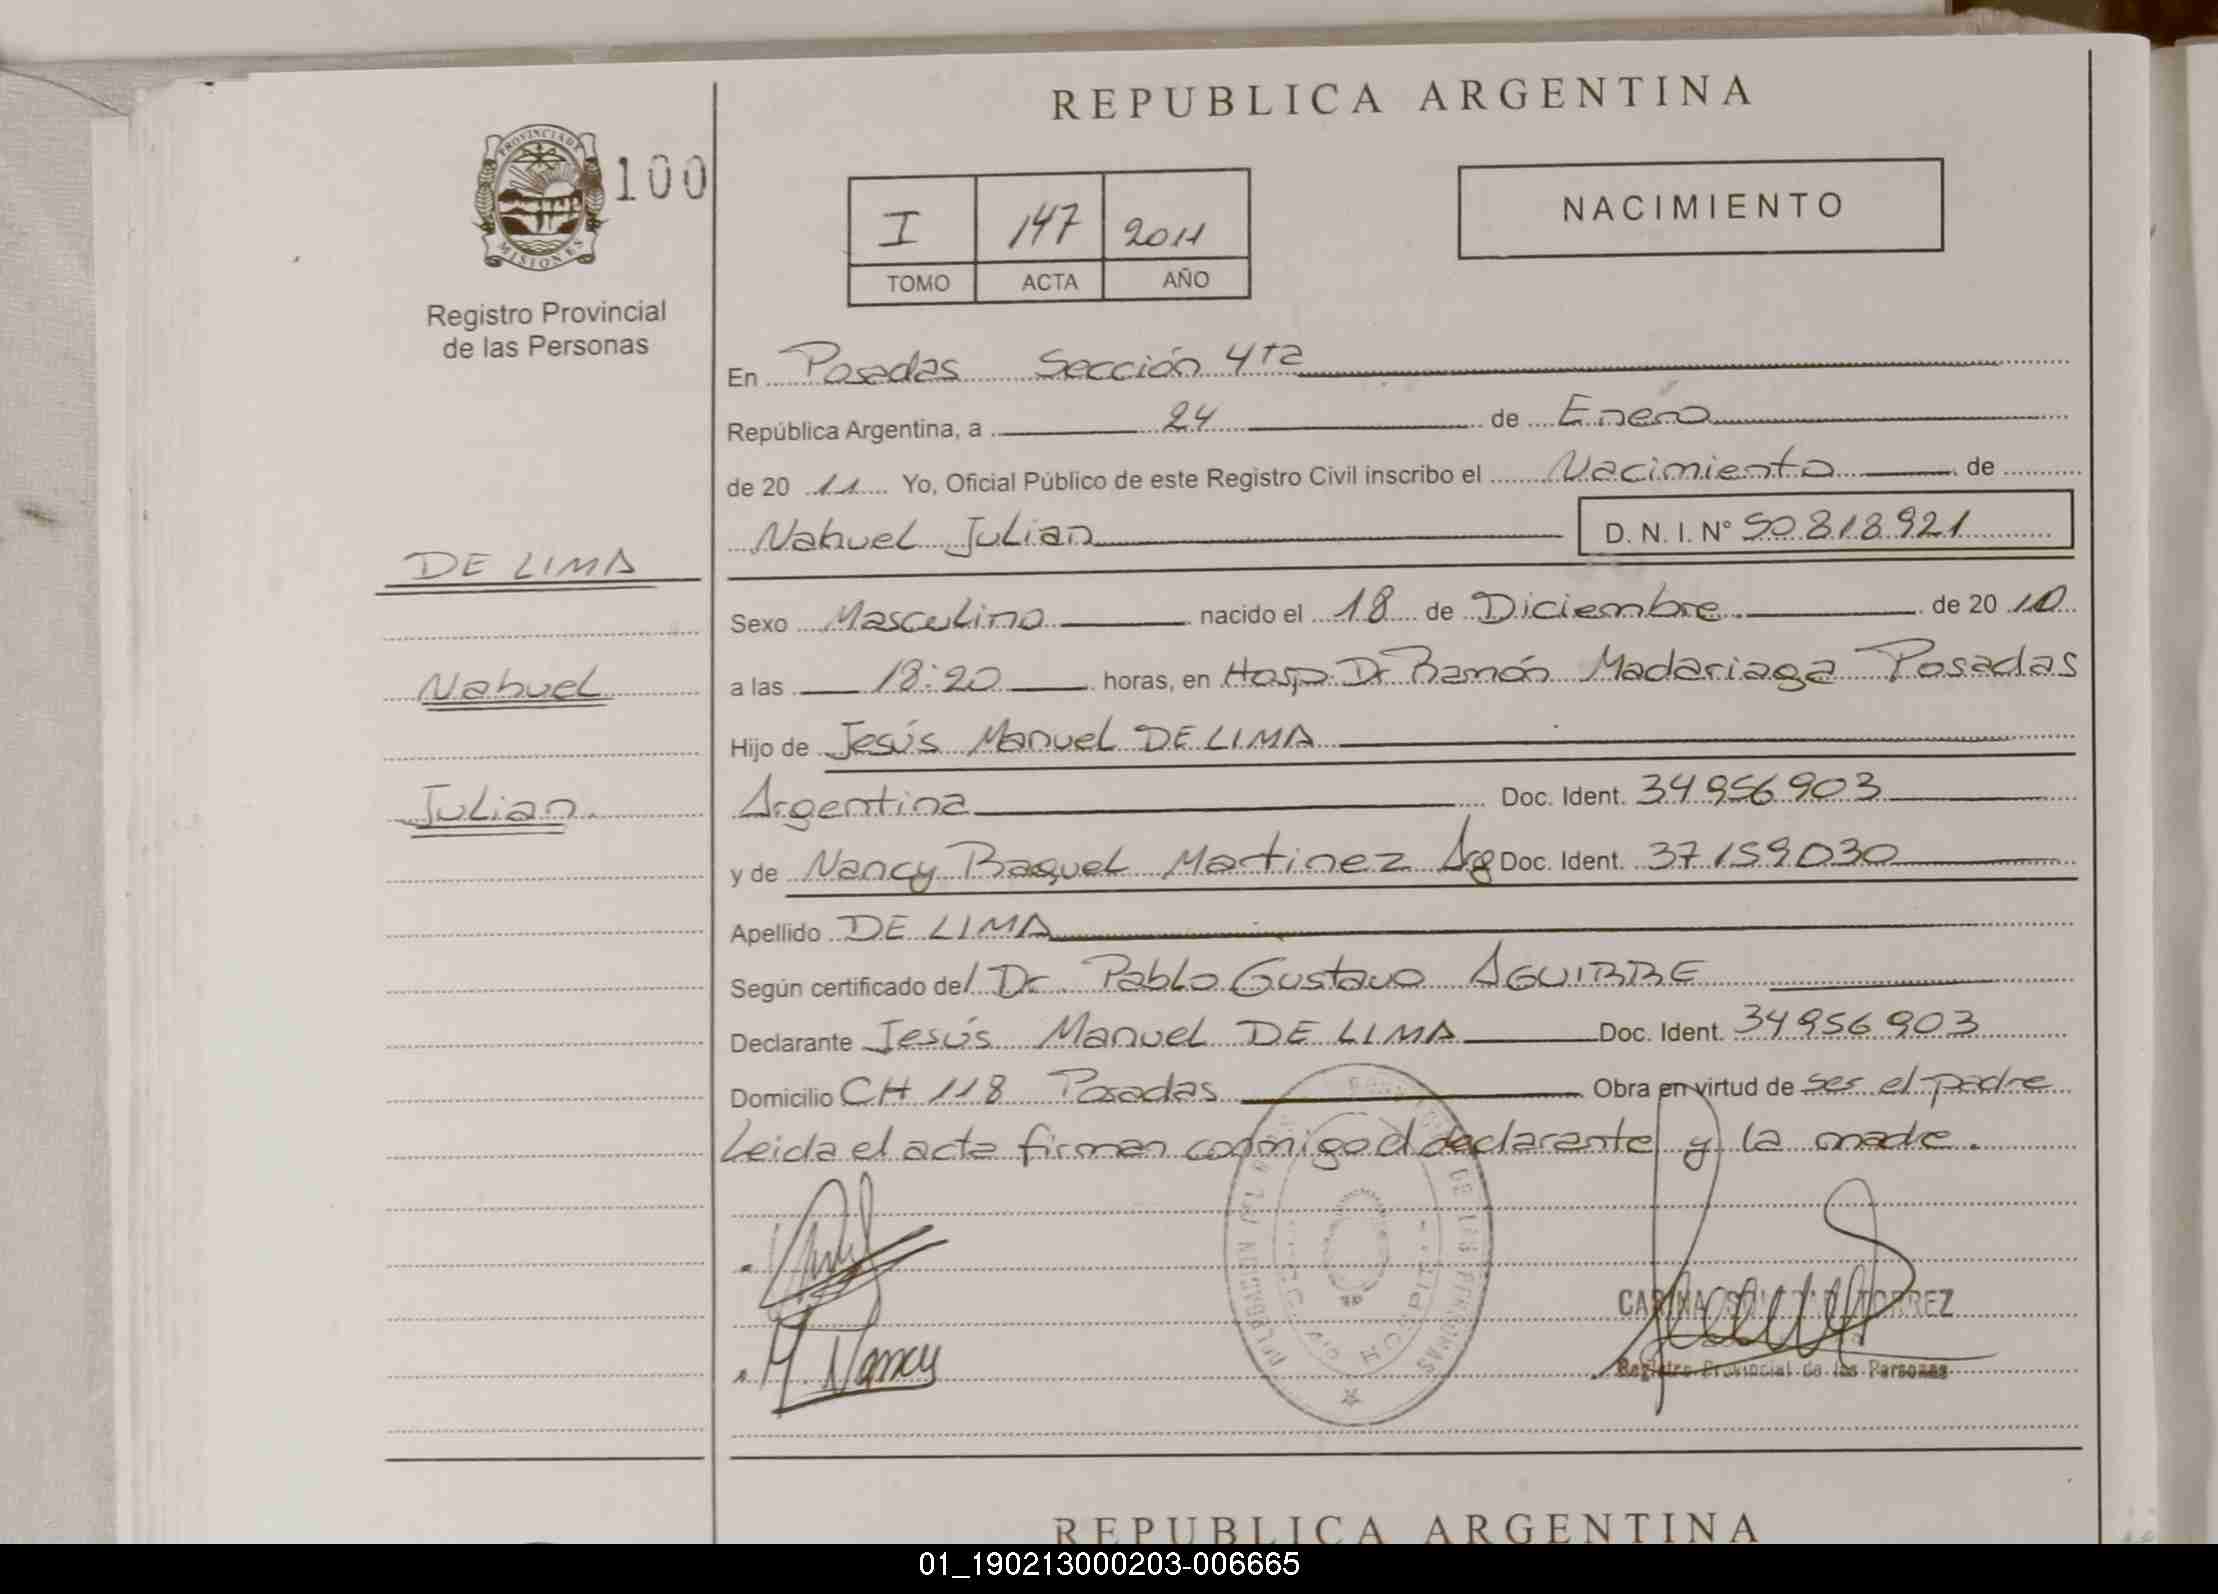 REPUBLICA ARGENTINA
PROVINCIA DE
MISIONES
100
I 147 2011
TOMO ACTA AÑO
NACIMIENTO
Registro Provincial
de las Personas
En Posadas Sección 4ta
República Argentina, a 24 de Enero
de 20 11 Yo, Oficial Público de este Registro Civil inscribo el Nacimiento de
Nahuel Julian D. N. I. N° 50.818.921
DE LIMA
Nahuel
Julian.
Sexo Masculino nacido el 18 de Diciembre de 20 10
a las 18:20 horas, en Hosp. Dr Ramón Madariaga Posadas
Hijo de Jesús Manuel DE LIMA
Argentina Doc. Ident. 34.956.903
y de Nancy Raquel Martinez Arg Doc. Ident. 37.159.030
Apellido DE LIMA
Según certificado del Dr. Pablo Gustavo AGUIRRE
Declarante Jesús Manuel DE LIMA Doc. Ident. 34.956.903
Domicilio CH 118 Posadas Obra en virtud de ser el padre
Leida el acta firman conmigo el declarante y la madre.
M. Nancy
DE LAS PERSONAS
HOSPITAL
CARINA TORREZ
Registro Provincial de las Personas
REPUBLICA ARGENTINA
01_190213000203-006665